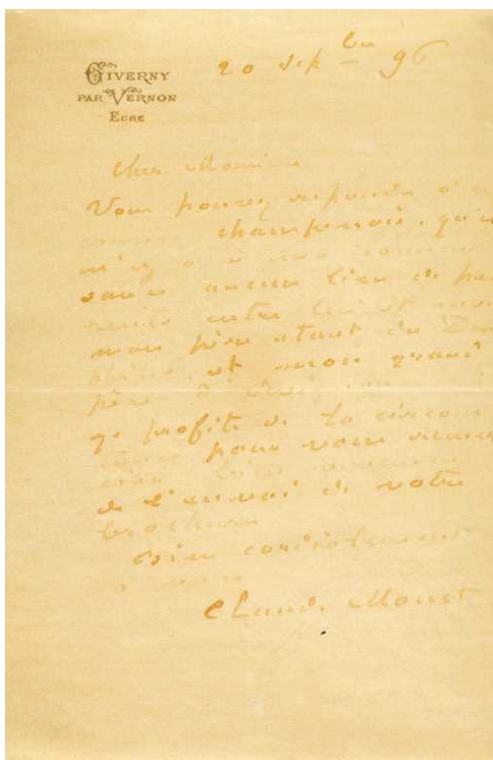 GIVERNY
PAR VERNON
EURE
20 sept bre 96
Cher Monsieur
Vous pouvez répondre à
champenois, qu'il
n'y a à ma
aucun lien de pa
renté entre lui et moi
mon père étant du Dau
phiné et mon grand
père d'Avignon
je profite de la circons
tance pour vous remer
cier
de l'envoi de votre
brochure
Bien cordialement
à vous
Claude Monet